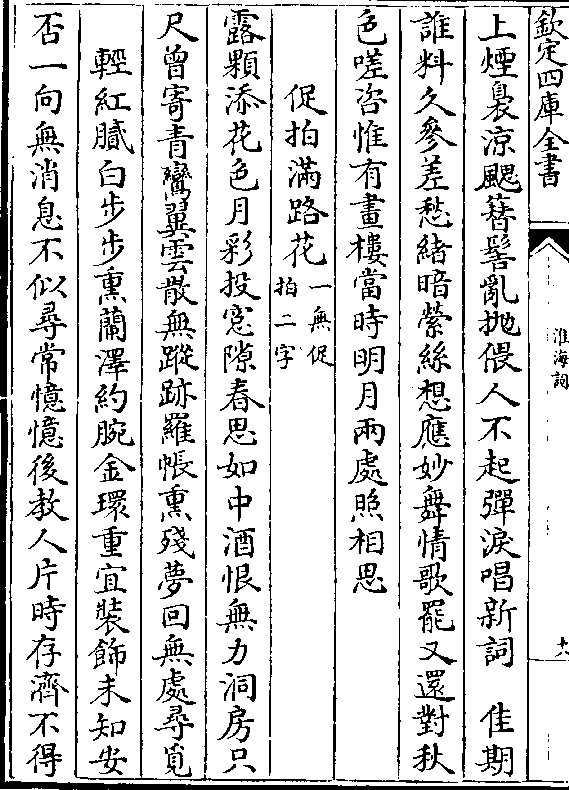 欽定四庫全書
淮海詞
十六
上煙裊涼颸簪髻亂抛偎人不起彈淚唱新詞　佳期
誰料久參差愁緒暗縈絲想應妙舞情歌罷又還對秋
色嗟咨惟有畫樓當時明月兩處照相思
促拍滿路花一無促拍二字
露顆添花色月彩投窓隙春思如中酒恨無力洞房只
尺曾寄青鸞翼雲散無蹤跡羅帳熏殘夢回無處尋覓
輕紅膩白步步熏蘭澤約腕金環重宜裝飾未知安
否一向無消息不似尋常憶憶後教人片時存濟不得